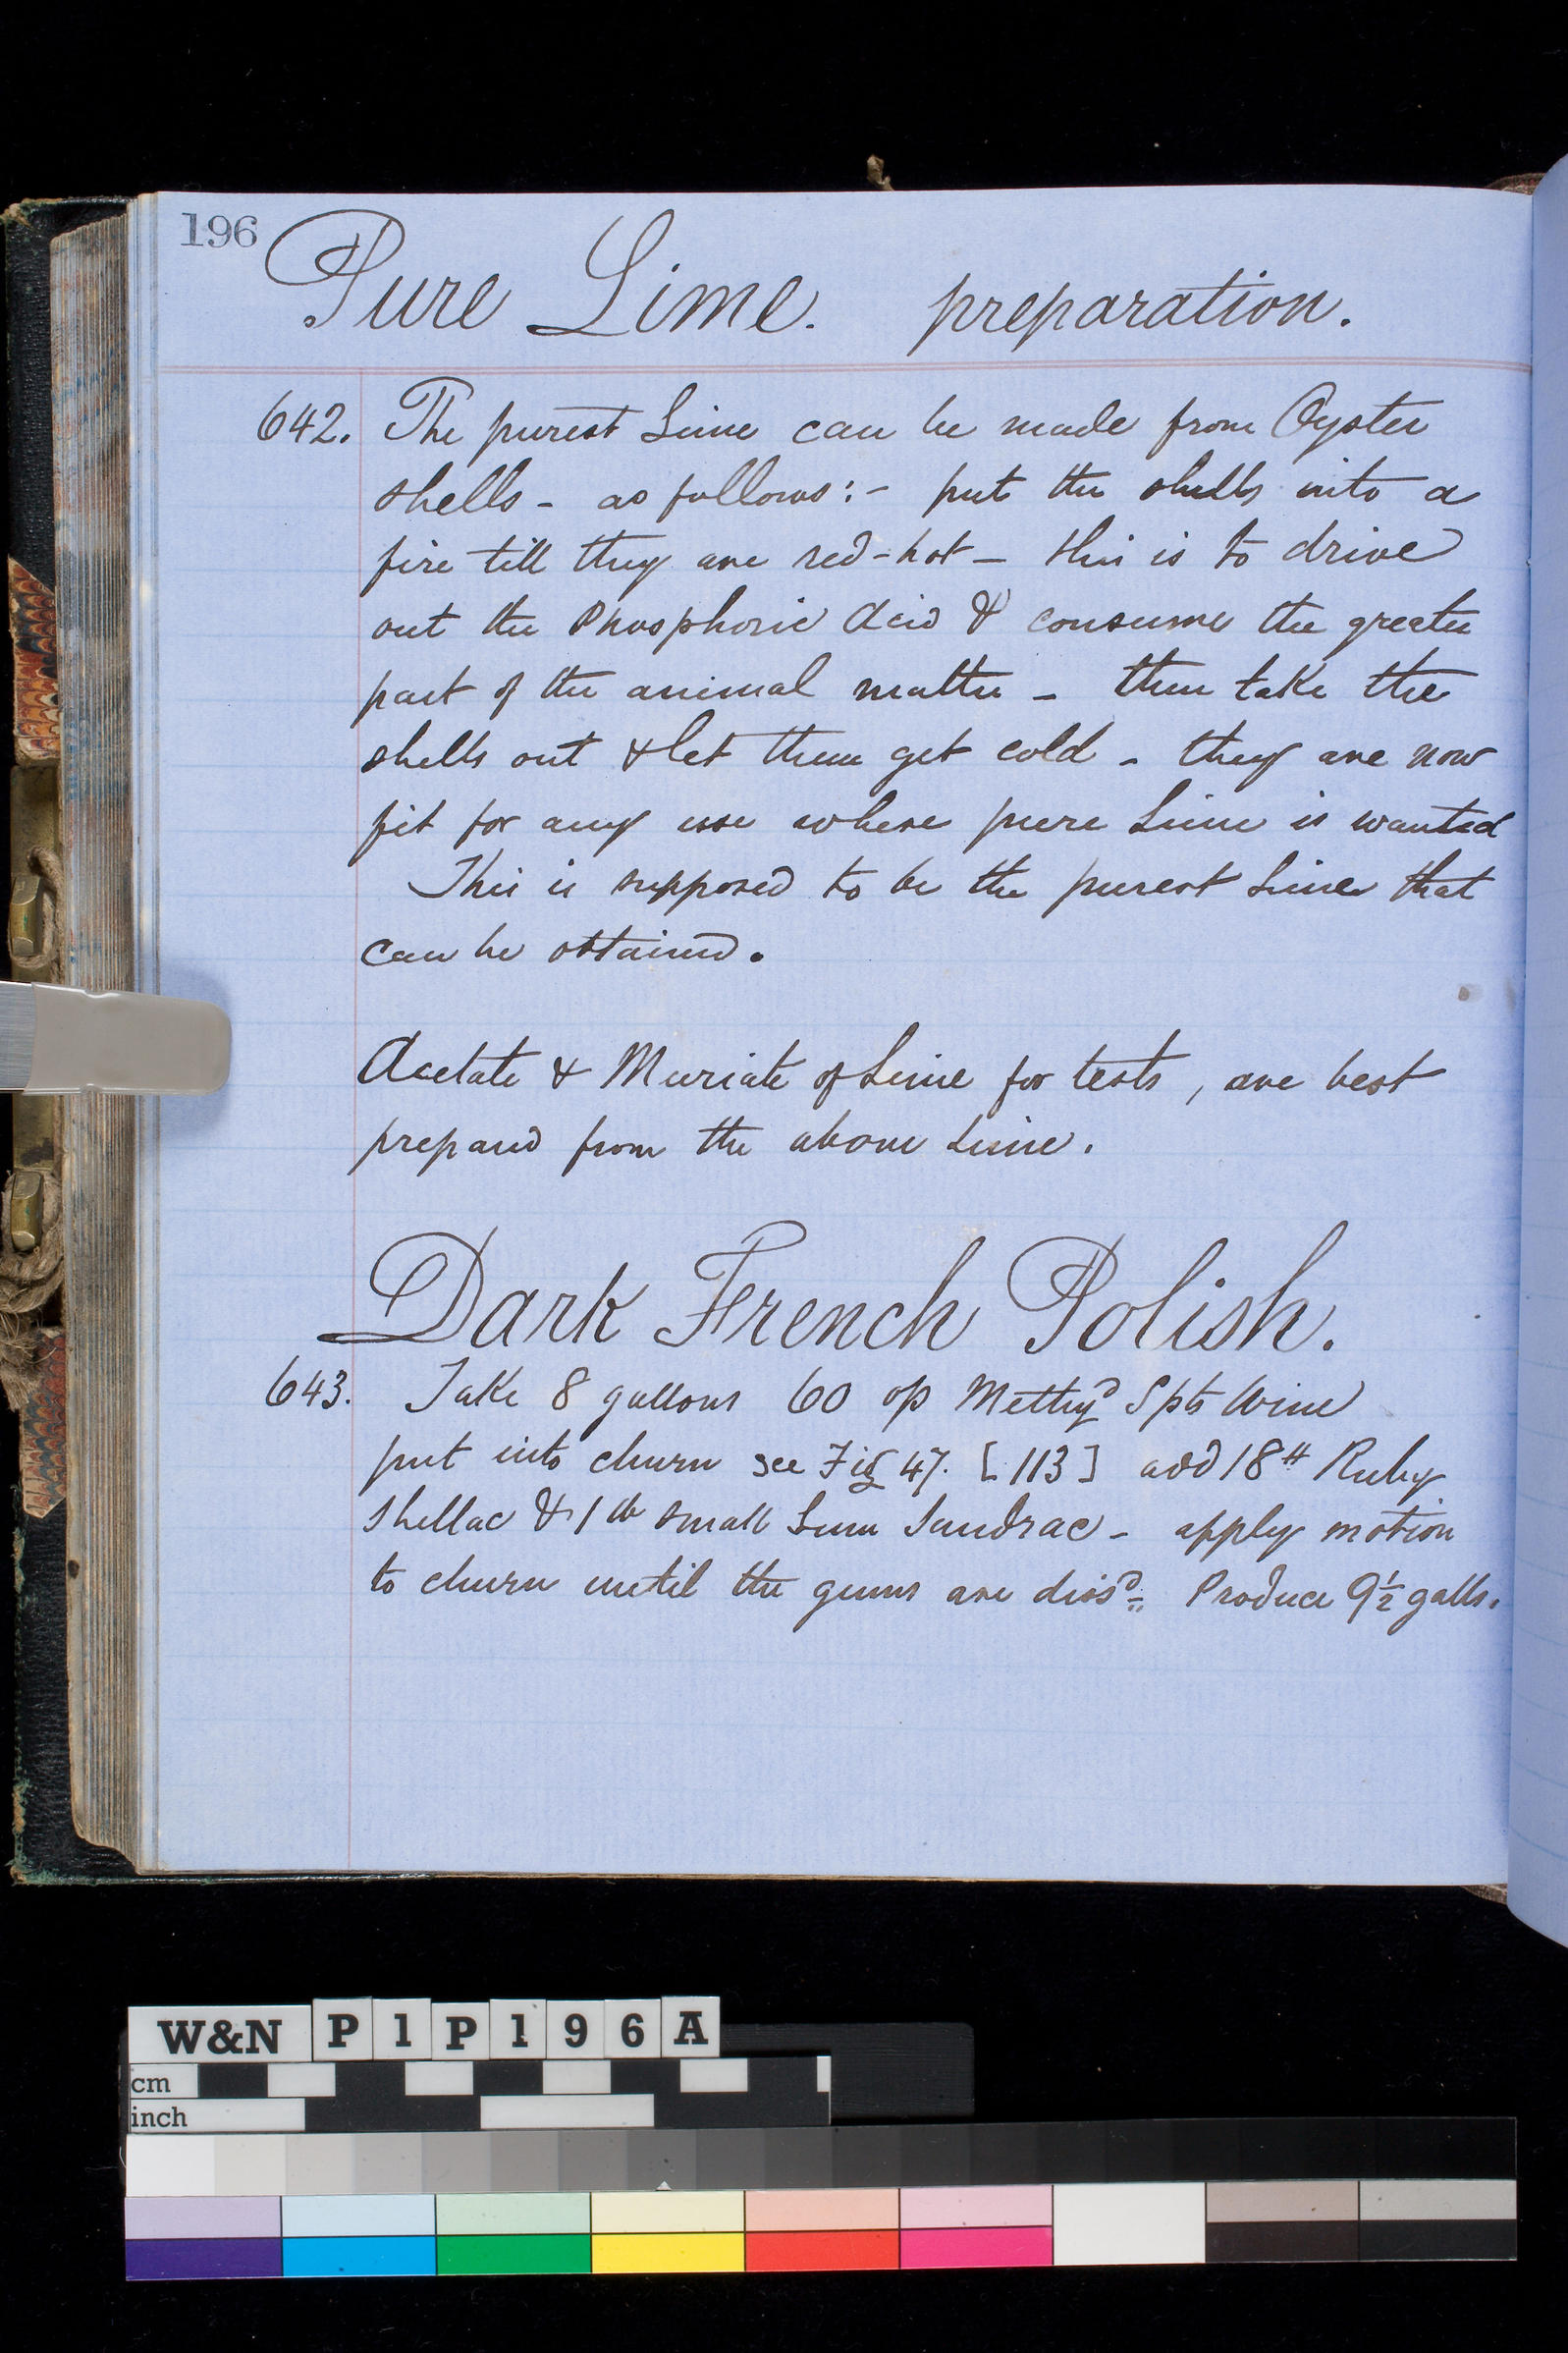 196
Pure Lime. preparation.
642. The purest Lime can be made from Oyster
shells - as follows:- put the shells into a
fire till they are red-hot - this is to drive
out the Phosphoric Acid & consume the greater
part of the animal matter - then take the
shells out & let them get cold - they are now
fit for any use where pure Lime is wanted
This is supposed to be the purest Lime that
can be obtained.
Acetate & Muriate of Lime for tests, are best
prepared from the above Lime.
Dark French Polish.
643. Take 8 gallons 60 op Methyd Spts Wine
put into churn see Fig 47. [113] add 18# Ruby
Shellac & 1 lb small Gum Sandrac - apply motion
to churn until the gums are dissd. Produce 9½ galls.
W&N P1P196A
cm
inch